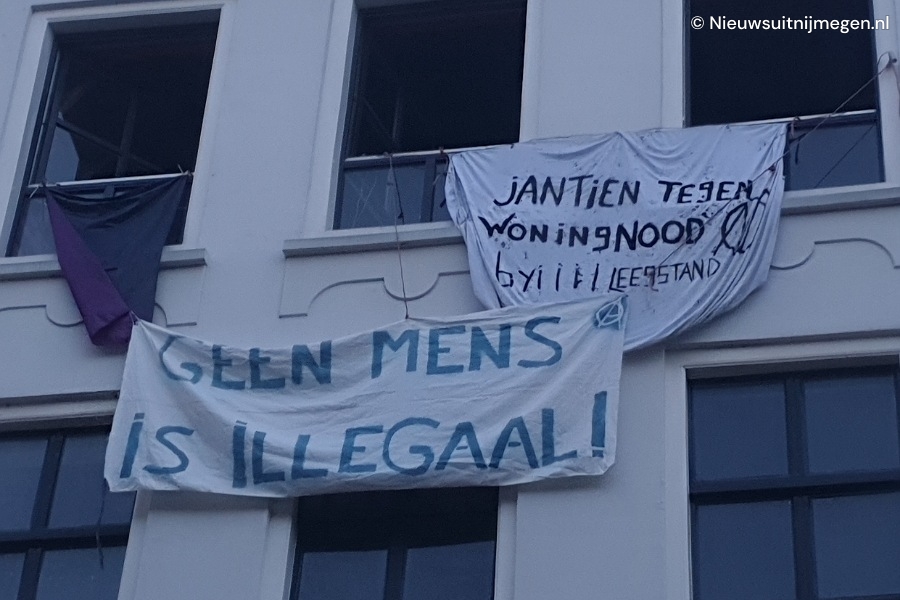 © Nieuwsuitnijmegen.nl
JANTIEN TEGEN
WONINGNOOD
byiiii LEEGSTAND
GEEN MENS
IS ILLEGAAL!